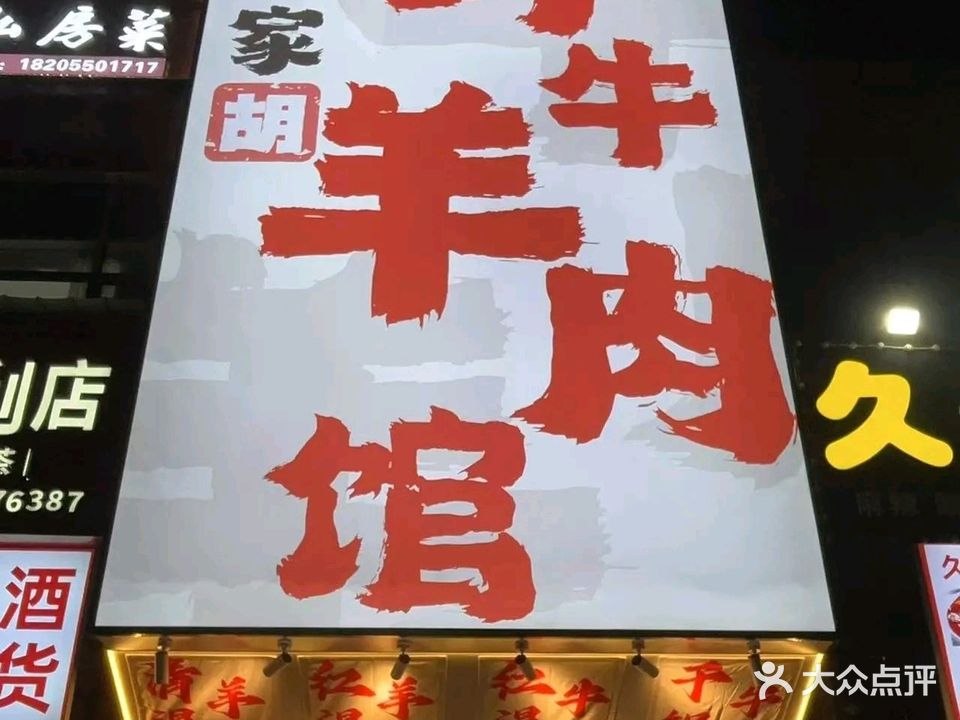 房菜
18205501717
家
胡
牛
羊
肉
馆
利店
76387
酒
货
久
久
清 羊
红 羊
红 牛
干 牛
大众点评